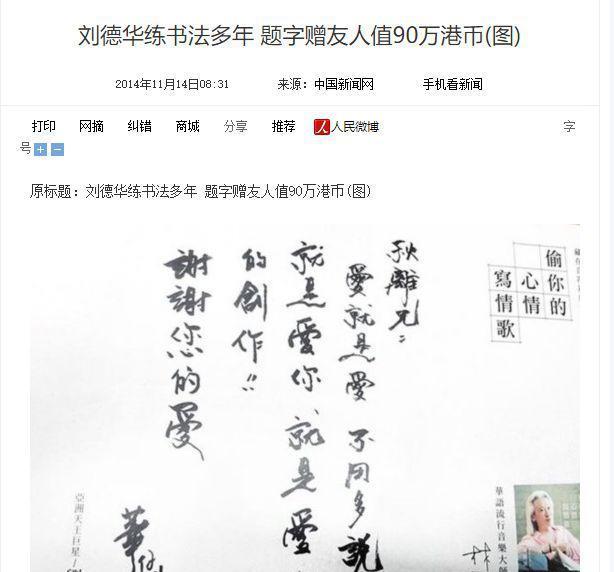 刘德华练书法多年 题字赠友人值90万港币(图)
2014年11月14日08:31 来源：中国新闻网 手机看新闻
打印 网摘 纠错 商城 分享 推荐 人民微博 字
号 + −
原标题：刘德华练书法多年 题字赠友人值90万港币(图)
偷你的
心情
寫情歌
秋離兄：
愛就是愛 不用多說
就是愛你 就是愛
的創作!!
謝謝您的愛
華仔
華語流行音樂大師
林
亞洲天王巨星/